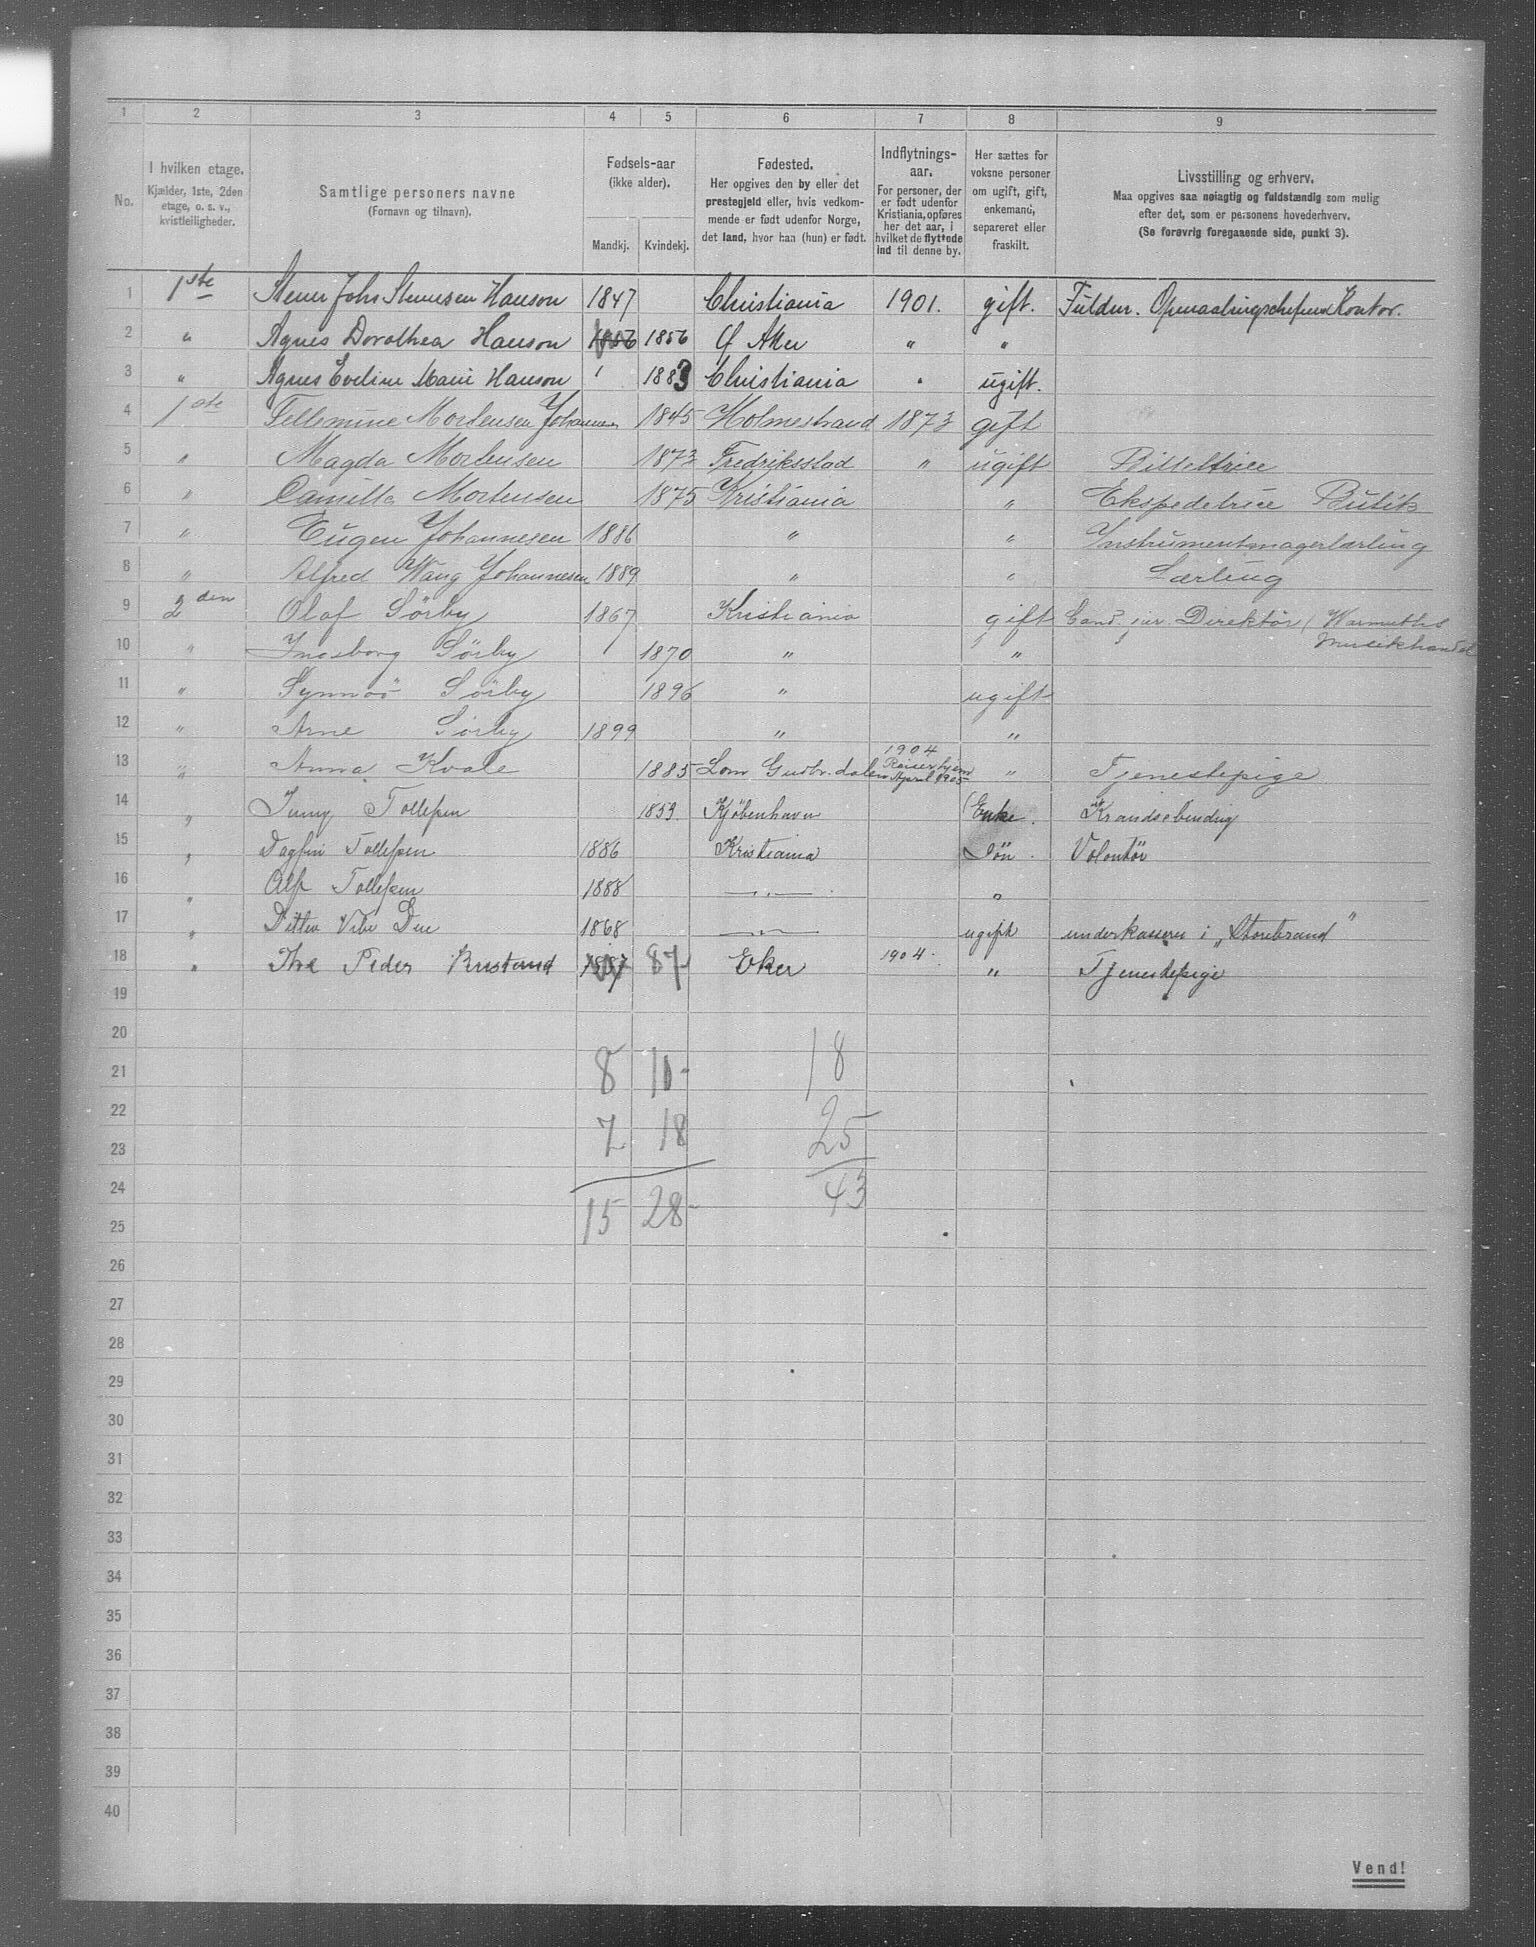 1 2 3 4 5 6 7 8 9
No.
I hvilken etage.
Kjælder, 1ste, 2den
etage, o. s. v.,
kvistleiligheder.
Samtlige personers navne
(Fornavn og tilnavn).
Fødsels-aar
(ikke alder).
Mandkj. Kvindekj.
Fødested.
Her opgives den by eller det
prestegjeld eller, hvis vedkom-
mende er født udenfor Norge,
det land, hvor han (hun) er født.
Indflytnings-
aar.
For personer, der
er født udenfor
Kristiania, opføres
her det aar, i
hvilket de flyttede
ind til denne by.
Her sættes for
voksne personer
om ugift, gift,
enkemand,
separeret eller
fraskilt.
Livsstilling og erhverv.
Maa opgives saa nøiagtig og fuldstændig som mulig
efter det, som er personens hovederhverv.
(Se forøvrig foregaaende side, punkt 3).
1 1ste Hanson 1847 Christiania 1901. gift. Kontor.
2 " Agnes Dorothea Hanson 1856 1856 Aker " "
3 " Agnes Eveline Marie Hanson 1883 Christiania " ugift.
4 1ste Mortensen Johannesen 1845 Holmestrand 1873 gift
5 " Magda Mortensen 1873 Fredriksstad " ugift
6 " Camilla Mortensen 1875 Kristiania " Ekspeditrice Butik
7 " Eugen Johannesen 1886 " " Instrumentmagerlærling
8 " Alfred Wang Johannesen 1889 " " Lærling
9 2den Olaf Sörby 1867 Kristiania gift Cand. jur. Direktör (Warmuths
Musikhandel
10 " Ingeborg Sörby 1870 " "
11 " Synnöö Sörby 1896 " ugift
12 " Arne Sörby 1899 " "
13 " Anna Kvale 1885 Lom Gudbr.dalen 1904
Reiser hjem
April 1905 " Tjenestepige
14 " Jenny Tollefsen 1859. Kjøbenhavn Enke. Krandsebinding
15 " Dagfin Tollefsen 1886 Kristiania Søn. Volontør
16 " Alf Tollefsen 1888 — " — "
17 " Ditlev Vibe 1868 — " — ugift underkasserer i „Storebrand"
18 " Peder 1887 87 Eker 1904. " Tjenestepige
19
20
21 8 10- 18
22
23 7 18 25
24
25 15 28- 43
26
27
28
29
30
31
32
33
34
35
36
37
38
39
40
Vend!